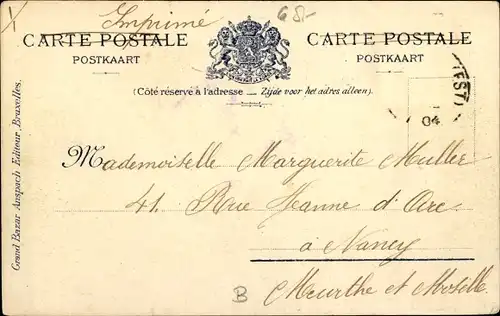 X
Imprimé
68.-
CARTE POSTALE
POSTKAART
CARTE POSTALE
POSTKAART
(Côté réservé à l'adresse — Zijde voor het adres alleen).
(EST)
04
Mademoiselle Marguerite Muller
41. Rue Jeanne d'Arc
à Nancy
Meurthe et Moselle
B
Grand Bazar Anspach Editeur, Bruxelles.